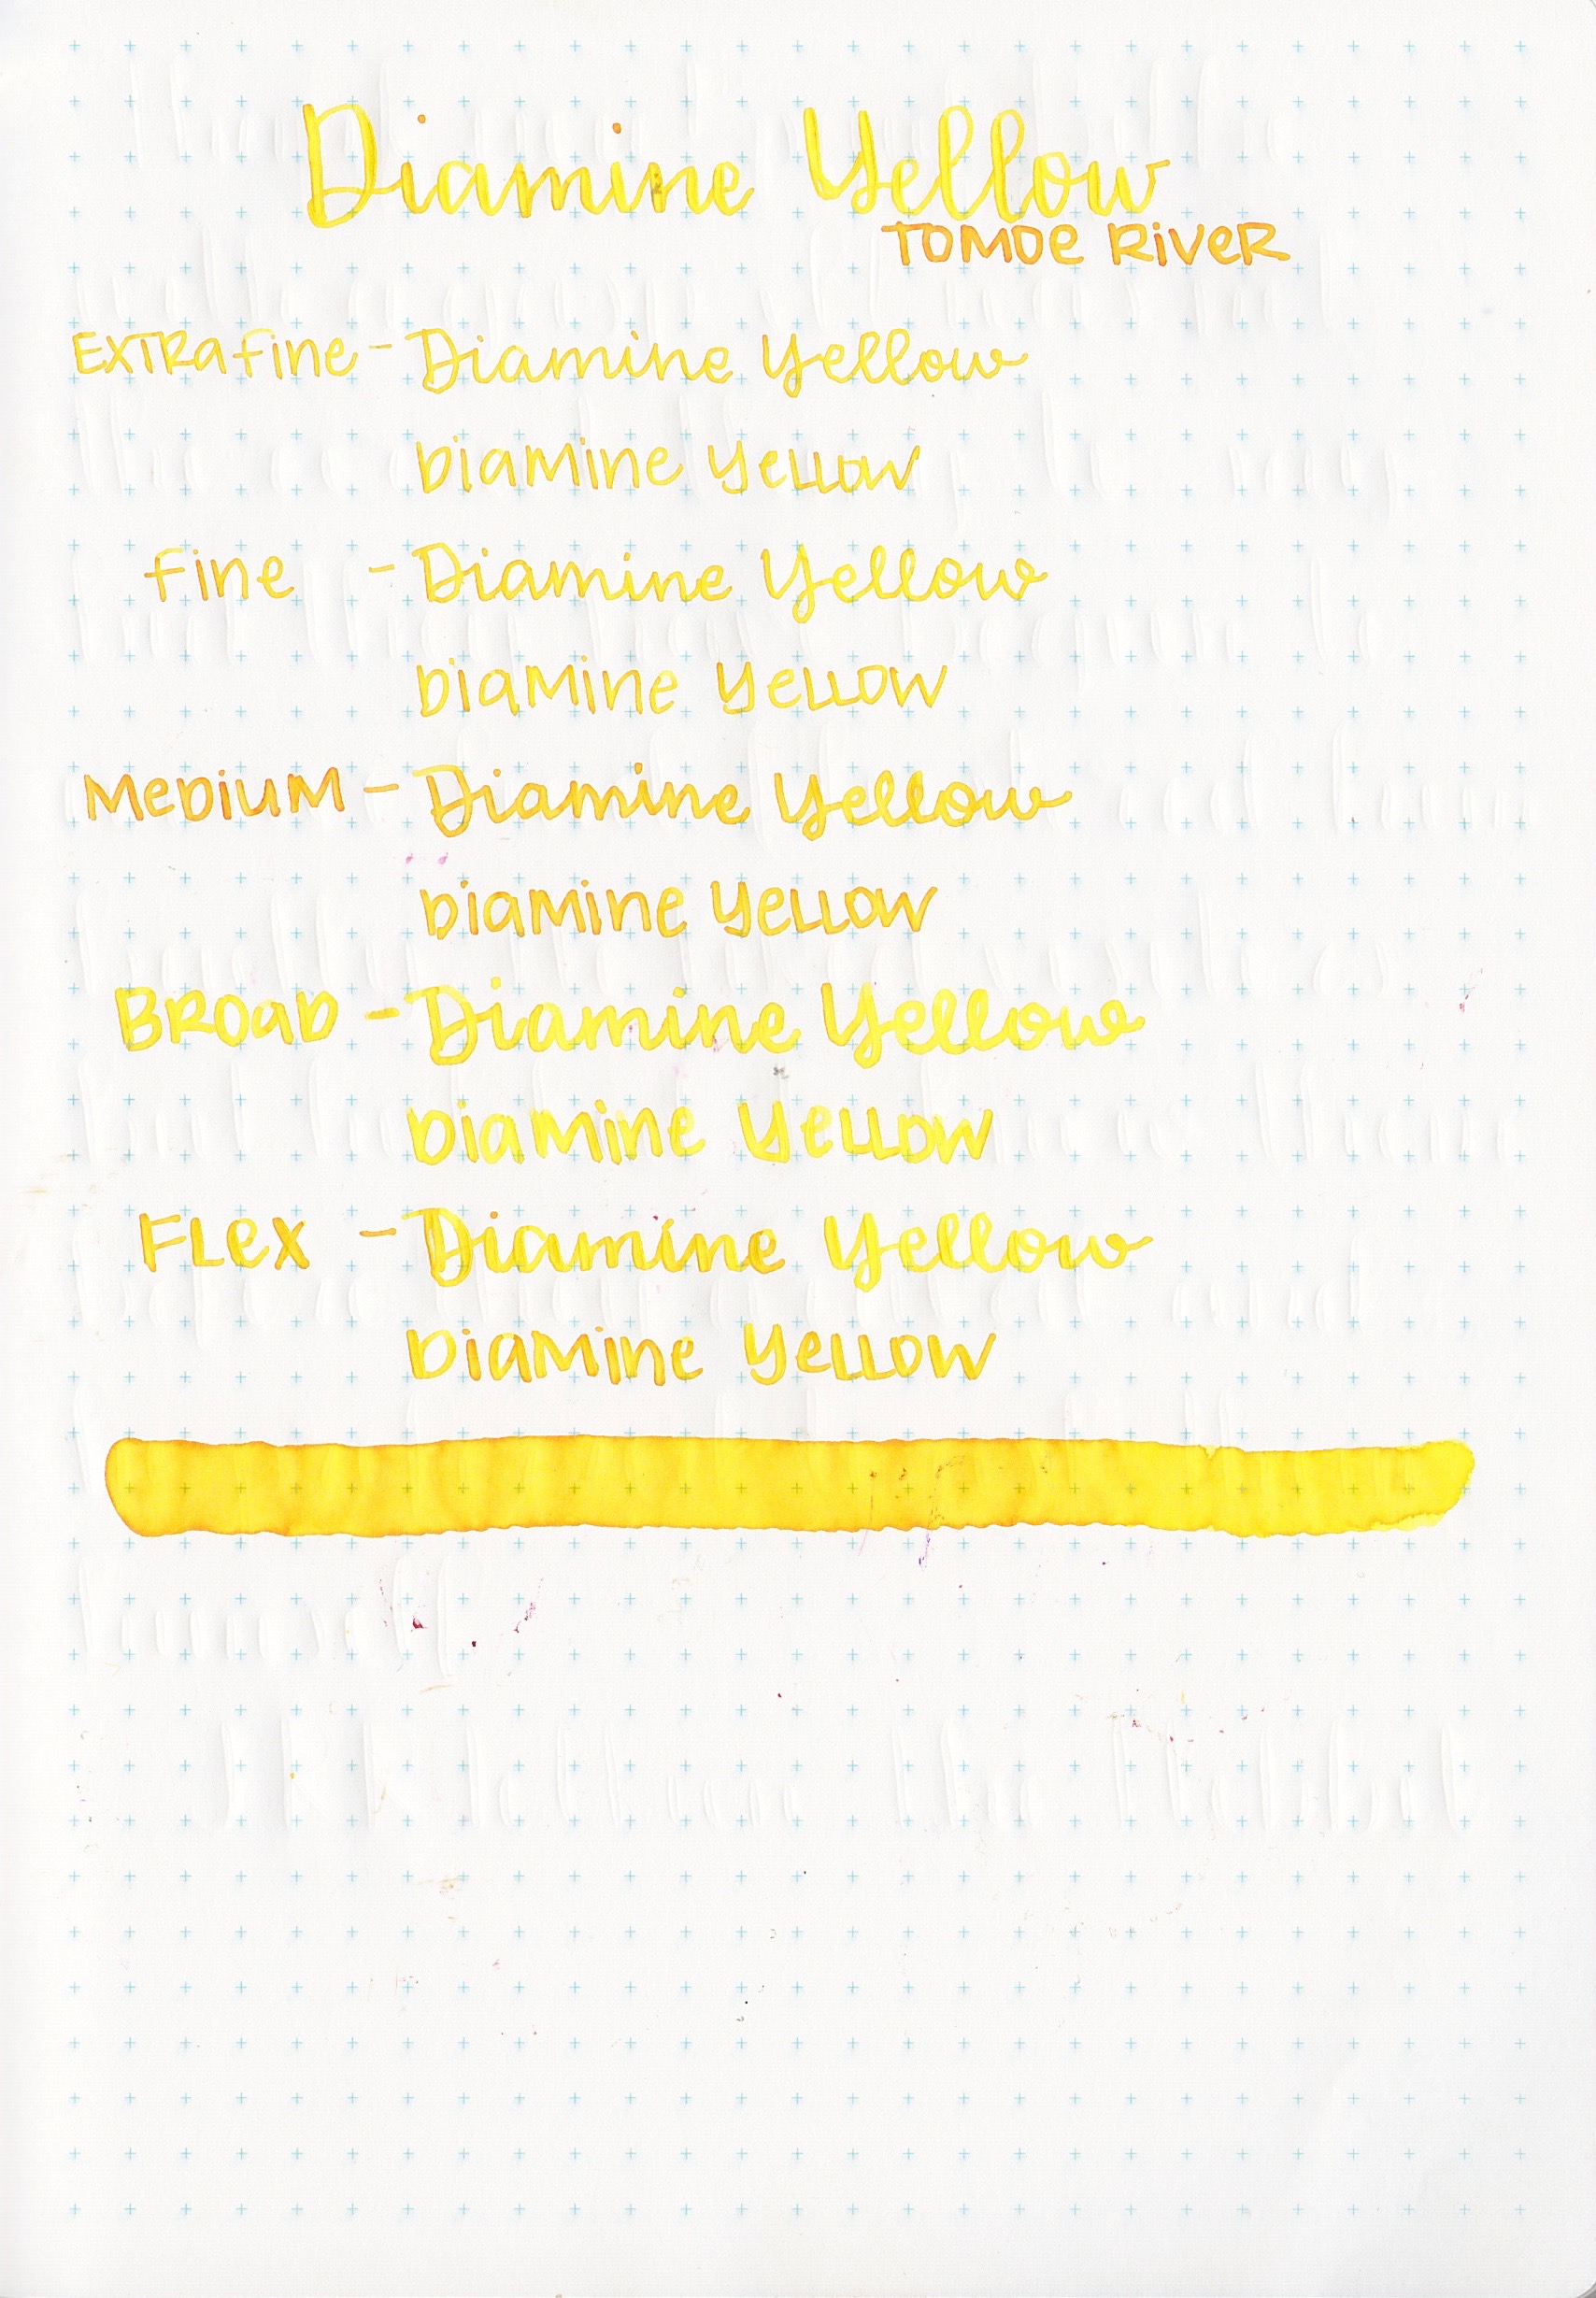 Diamine Yellow
TOMOE RiVER
EXTRA fiNE - Diamine Yellow
DiaMiNe YeLLOW
fiNe - Diamine Yellow
DiaMiNe YeLLOW
MeDiUM - Diamine Yellow
DiaMiNe YeLLOW
BROaD - Diamine Yellow
DiaMiNe YeLLOW
FLeX - Diamine Yellow
DiaMiNe YeLLOW